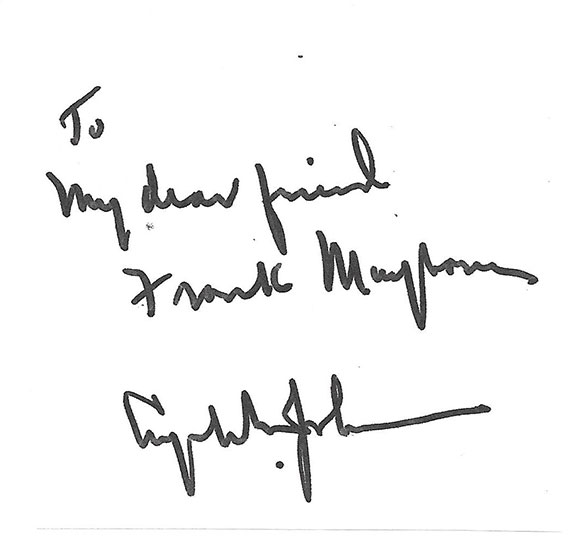 To
My dear friend
Frank Mayborn
Lyndon B. Johnson